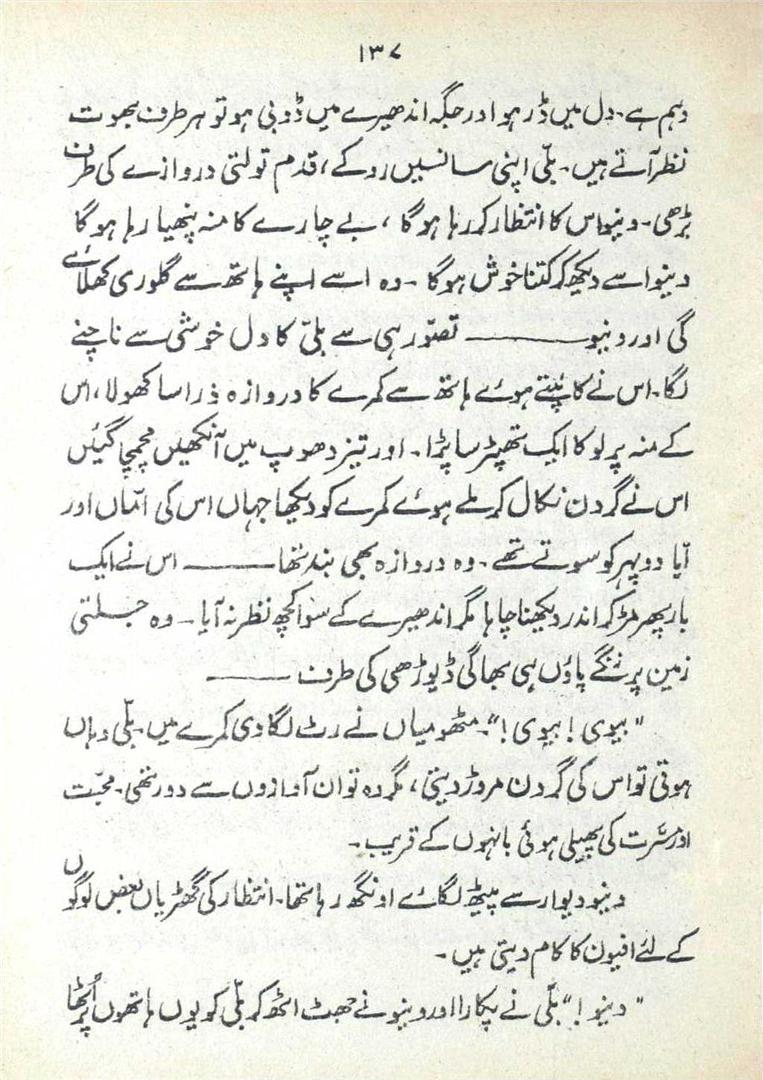 ۱۳۷
وہم ہے۔ دل میں ڈر ہو اور جگہ اندھیرے میں ڈوبی ہو تو ہر طرف بھوت
نظر آتے ہیں۔ بلّی اپنی سانسیں روکے، قدم تولتی دروازے کی طرف
بڑھی۔ دینو اس کا انتظار کر رہا ہوگا، بے چارے کا منہ پنھیا رہا ہوگا
دینو اسے دیکھ کر کتنا خوش ہوگا۔ وہ اسے اپنے ہاتھ سے گلوری کھلائے
گی اور دینو ——— تصوّر ہی سے بلّی کا دل خوشی سے ناچنے
لگا۔ اس نے کانپتے ہوئے ہاتھ سے کمرے کا دروازہ ذرا سا کھولا، اس
کے منہ پر لو کا ایک تھپیڑ سا پڑا۔ اور تیز دھوپ میں آنکھیں مچمچا گئیں
اس نے گردن نکال کر ملے ہوئے کمرے کو دیکھا جہاں اس کی امّاں اور
آپا دوپہر کو سوتے تھے۔ وہ دروازہ بھی بند تھا ——— اس نے ایک
بار پھر مڑ کر اندر دیکھنا چاہا مگر اندھیرے کے سوا کچھ نظر نہ آیا۔ وہ جلتی
زمین پر ننگے پاؤں ہی بھاگی ڈیوڑھی کی طرف ———
"بیوی! بیوی!"۔ مٹھو میاں نے رٹ لگا دی کمرے میں۔ بلّی وہاں
ہوتی تو اس کی گردن مروڑ دیتی، مگر وہ تو ان آوازوں سے دور تھی۔ محبّت
اور مسّرت کی پھیلی ہوئی بانہوں کے قریب۔
دینو دیوار سے پیٹھ لگائے اونگھ رہا تھا۔ انتظار کی گھڑیاں بعض لوگوں
کے لئے افیون کا کام دیتی ہیں۔
"دینو!" بلّی نے پکارا اور دینو نے جھٹ اٹھ کر بلّی کو یوں ہاتھوں پر اُٹھا